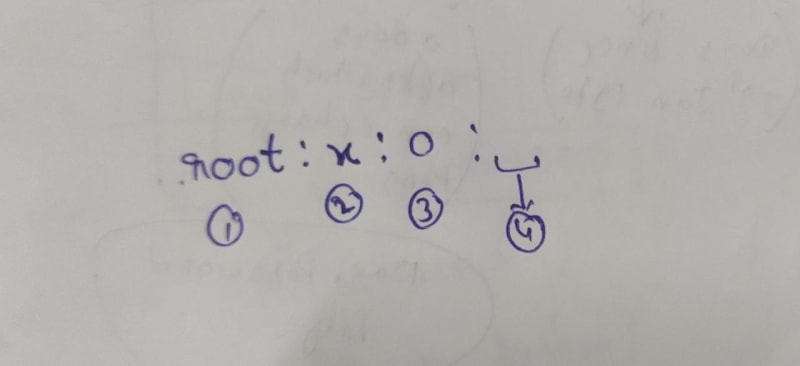 root : x : 0 :
1 2 3 4